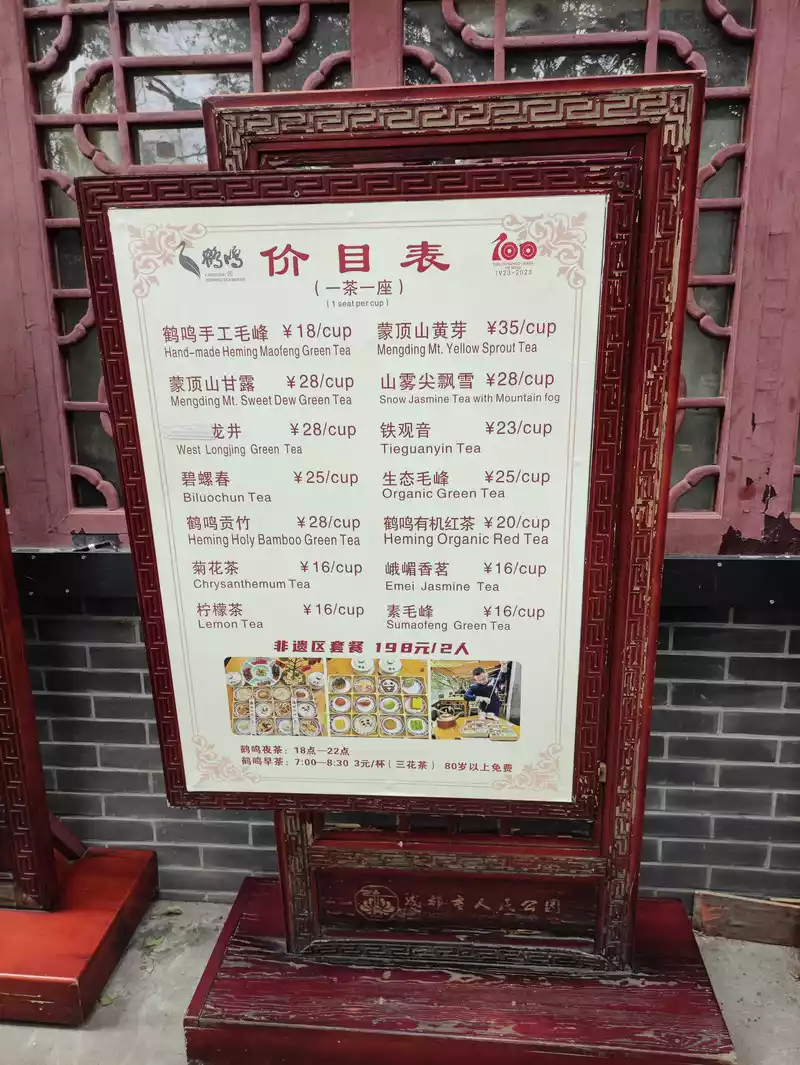 鹤鸣
HEMING TEA HOUSE
价目表
100
1923-2023
(一茶一座)
(1 seat per cup)
鹤鸣手工毛峰 ¥18/cup
Hand-made Heming Maofeng Green Tea
蒙顶山黄芽 ¥35/cup
Mengding Mt. Yellow Sprout Tea
蒙顶山甘露 ¥28/cup
Mengding Mt. Sweet Dew Green Tea
山雾尖飘雪 ¥28/cup
Snow Jasmine Tea with Mountain fog
龙井 ¥28/cup
West Longjing Green Tea
铁观音 ¥23/cup
Tieguanyin Tea
碧螺春 ¥25/cup
Biluochun Tea
生态毛峰 ¥25/cup
Organic Green Tea
鹤鸣贡竹 ¥28/cup
Heming Holy Bamboo Green Tea
鹤鸣有机红茶 ¥20/cup
Heming Organic Red Tea
菊花茶 ¥16/cup
Chrysanthemum Tea
峨嵋香茗 ¥16/cup
Emei Jasmine Tea
柠檬茶 ¥16/cup
Lemon Tea
素毛峰 ¥16/cup
Sumaofeng Green Tea
非遗区套餐 198元/2人
鹤鸣夜茶：18点—22点
鹤鸣早茶：7:00—8:30 3元/杯（三花茶） 80岁以上免费
成都市人民公园